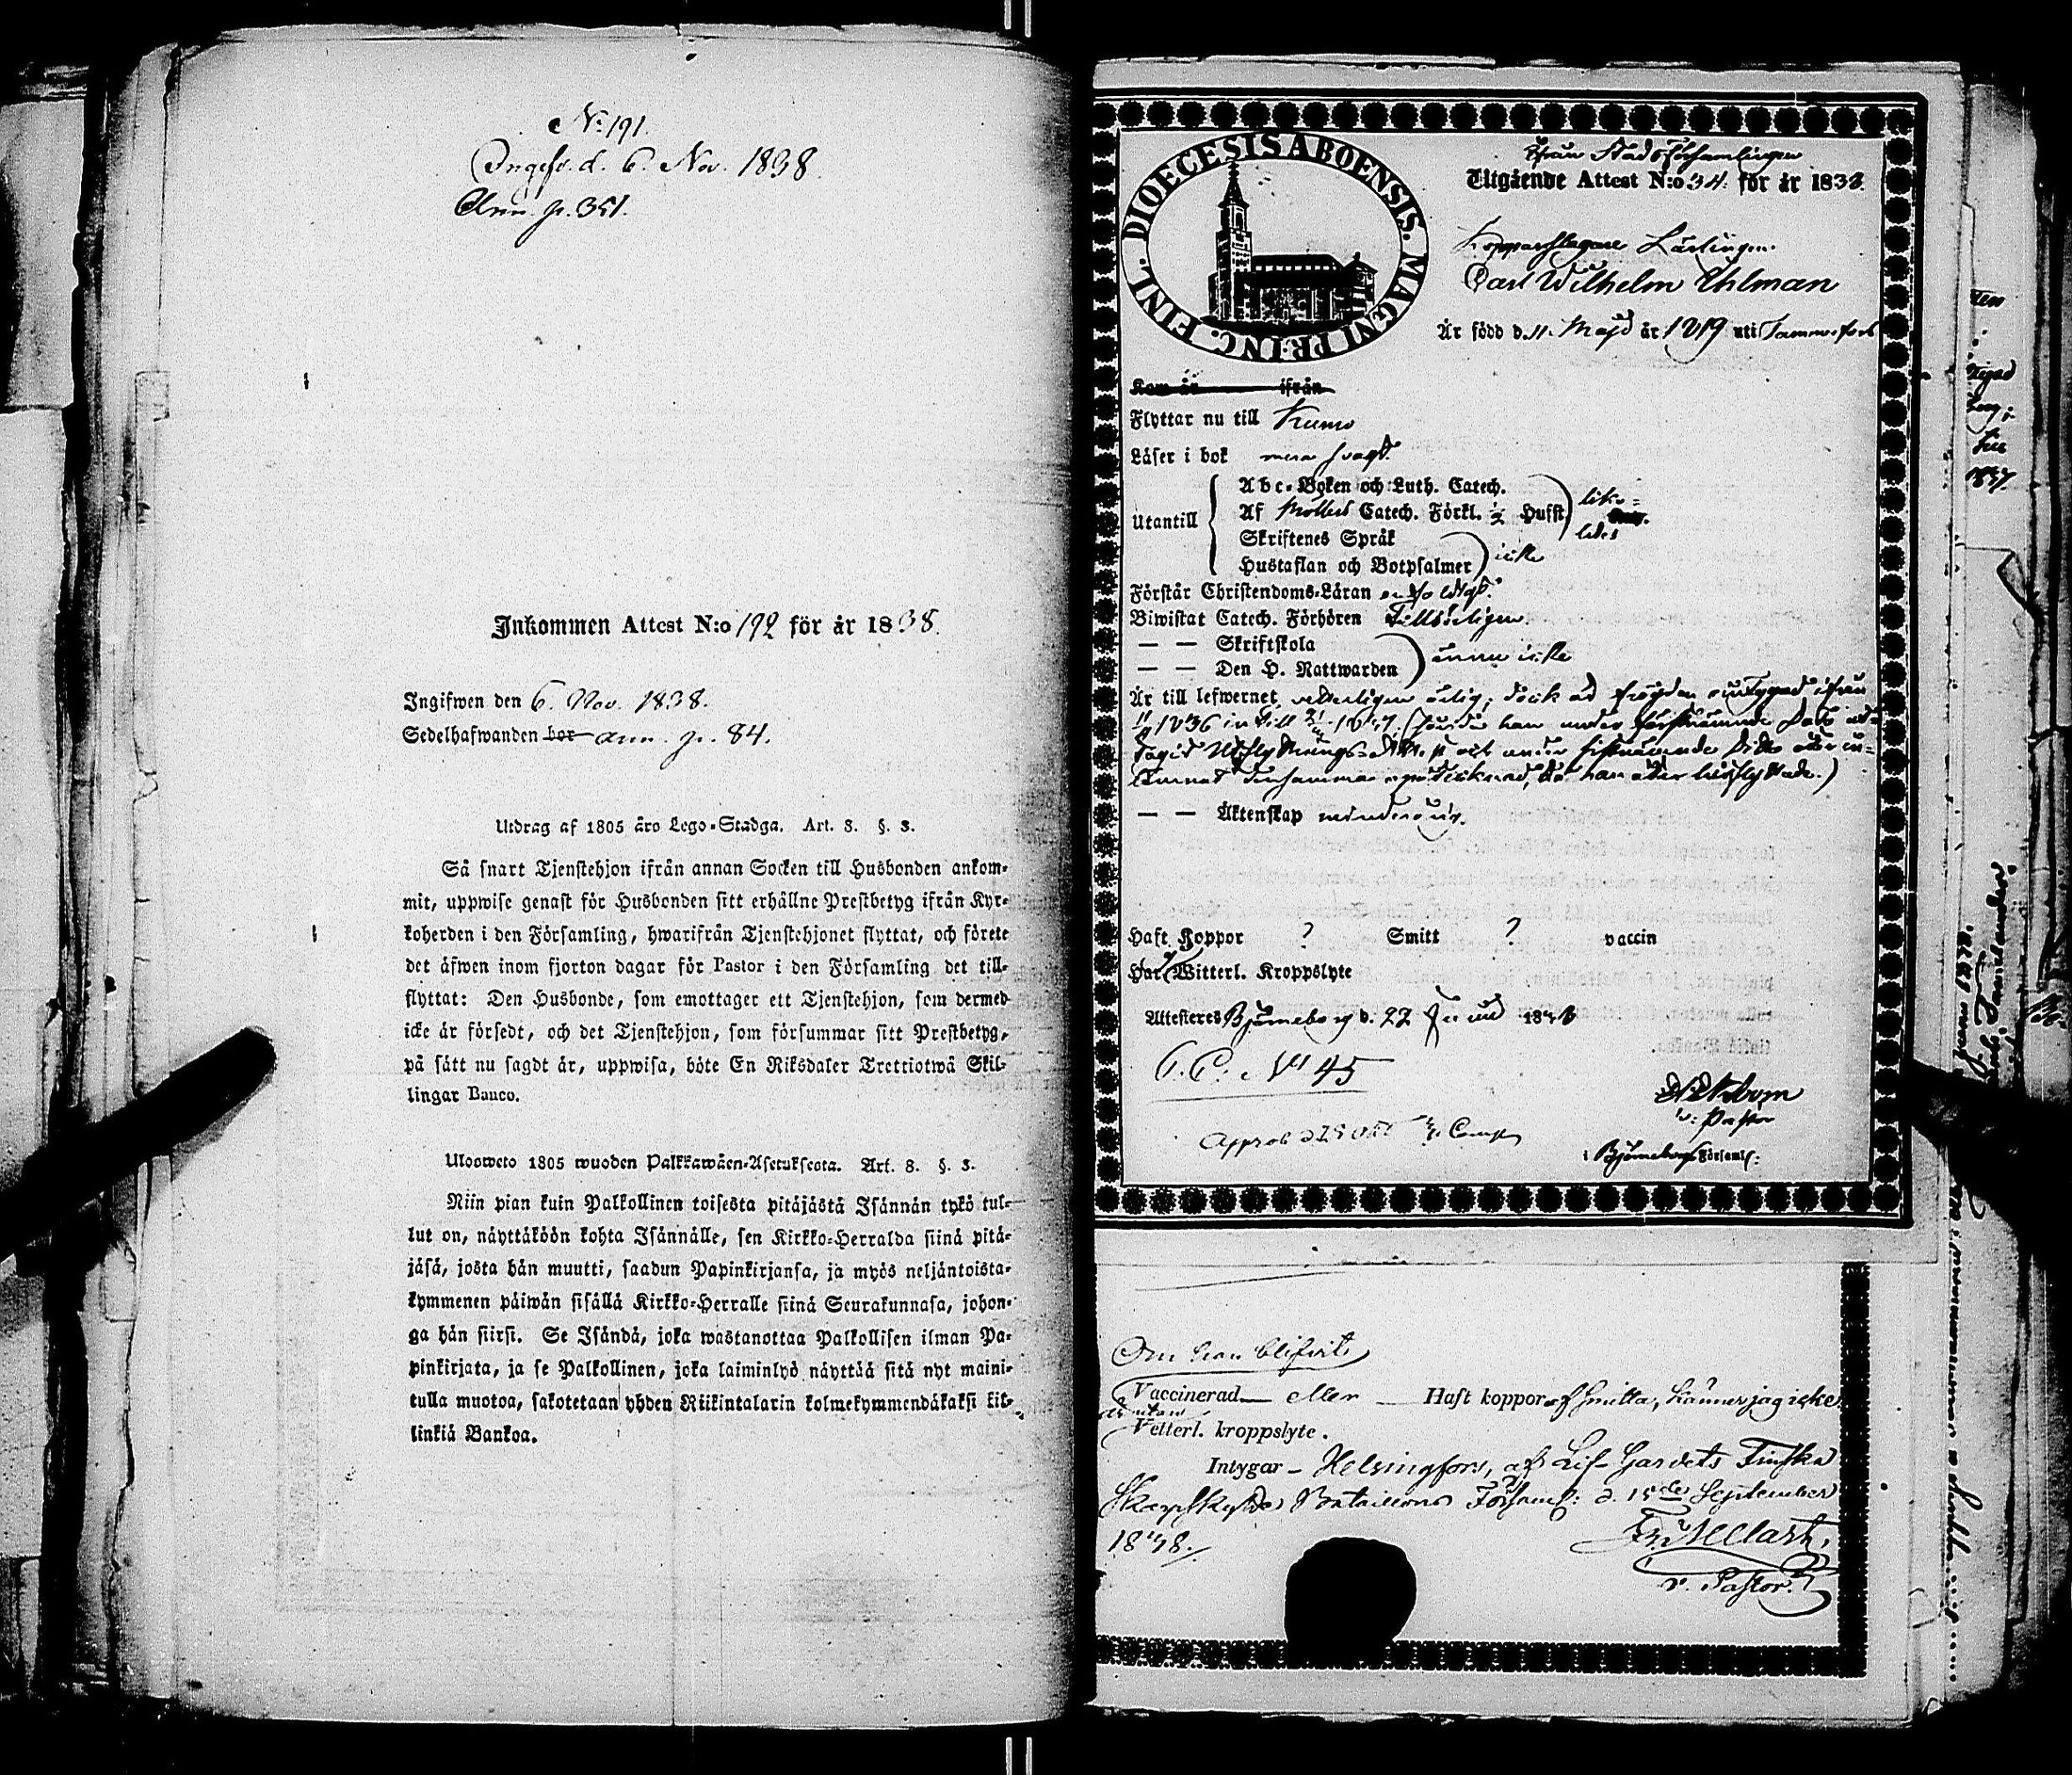 N:o 191.
Ingifv. d. 6. Nov. 1838
Ann. p. 351.
Inkommen Attest N:o 192 för år 1838.
Ingifwen den 6. Nov. 1838.
Sedelhafwanden bor ann. p. 84.
Utdrag af 1805 års Lego-Stadga. Art. 8. §. 3.
Så snart Tjenstehjon ifrån annan Socken till Husbonden ankom-
mit, uppwise genast för Husbonden sitt erhållne Prestbetyg ifrån Kyr-
koherden i den Församling, hwarifrån Tjenstehjonet flyttat, och förete
det äfwen inom fjorton dagar för Pastor i den Församling det till-
flyttat: Den Husbonde, som emottager ett Tjenstehjon, som dermed
icke är försedt, och det Tjenstehjon, som försummar sitt Prestbetyg,
på sätt nu sagdt är, uppwisa, böte En Riksdaler Trettiotwå Skil-
lingar Banco.
Ulosweto 1805 wuoden Palkkawäen-Asetuksesta. Art. 8. §. 3.
Niin pian kuin Palkollinen toisesta pitäjästä Isännän tykö tul-
lut on, näyttäköön kohta Isännälle, sen Kirkko-Herralda siinä pitä-
jäsä, josta hän muutti, saadun Papinkirjansa, ja myös neljäntoista-
kymmenen päiwän sisällä Kirkko-Herralle siinä Seurakunnasa, johon-
ga hän siirsi. Se Isändä, joka wastanottaa Palkollisen ilman Pa-
pinkirjata, ja se Palkollinen, joka laiminlyö näyttää sitä nyt maini-
tulla muotoa, sakotetaan yhden Riikintalarin kolmekymmendäkaksi kil-
linkiä Bankoa.
DIOECESIS ABOENSIS. MAGNI PRINC. FINL.
Ifrån Stads Församlingen
Utgående Attest N:o 34. för år 1838
Kopparslagare Lärlingen
Carl Wilhelm Uhlman
Är född d. 11. Maji år 1819 uti Tammerfors
Kom år ifrån
Flyttar nu till Kumo
Läser i bok mera svagt.
Utantill
Abc-Boken och Luth. Catech.
Af Möllers Catech. Förkl. ½ Hufst.
lika-
ledes
Skriftenes Språk
Hustaflan och Botpsalmer icke
Förstår Christendoms-Läran
Biwistat Catech. Förhören Tillbörligen.
— — Skriftskola
— — Den H. Nattwarden
ännu icke
Är till lefwernet vetterligen ärlig; dock ad frejden ointygad ifrån
1836 in till (hvarföre han under förstnämnde dato ut-
tagit Utflyttnings-Att. och under sistnämnde dato åter in-
lemnat densamma opåtecknad, då han åter hitflyttade.)
— — Äktenskap minderårig.
Haft Koppor ? Smitt ? vaccin
Har Witterl. Kroppslyte
Attesteras Björneborg d. 22 Juni 1838
C. C. N:o 45
v. Pastor
i Björneborgs Församl:
Om han blifvit
Vaccinerad — eller — Haft koppor af smitta, känner jag icke.
är utan
Vetterl. kroppslyte.
Intygar — Helsingfors, af Lif Gardets Finska
Skarpskytte Bataillons Församl: d. 15de September
1838.
v. Pastor.